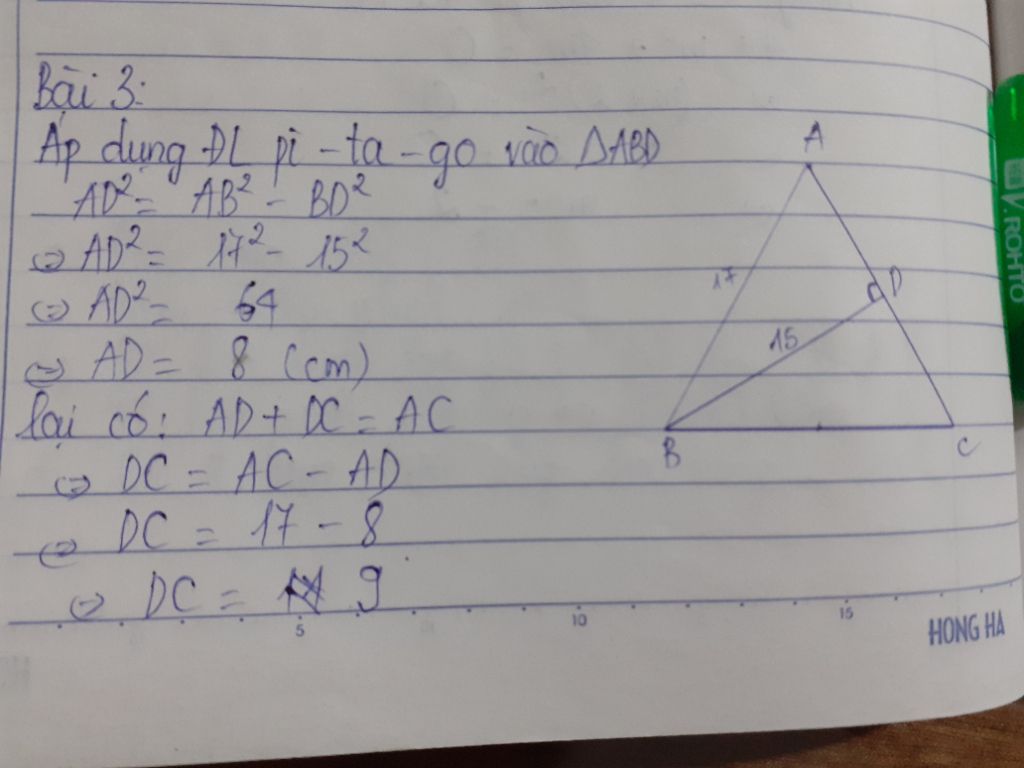 Bài 3:
Áp dụng ĐL pi-ta-go vào ΔABD
AD² = AB² - BD²
⇔ AD² = 17² - 15²
⇔ AD² = 64
⇔ AD = 8 (cm)
lại có: AD + DC = AC
⇔ DC = AC - AD
⇔ DC = 17 - 8
⇔ DC = 9
A
17
D
15
B
C
5
10
15
HONG HA
V.ROHTO